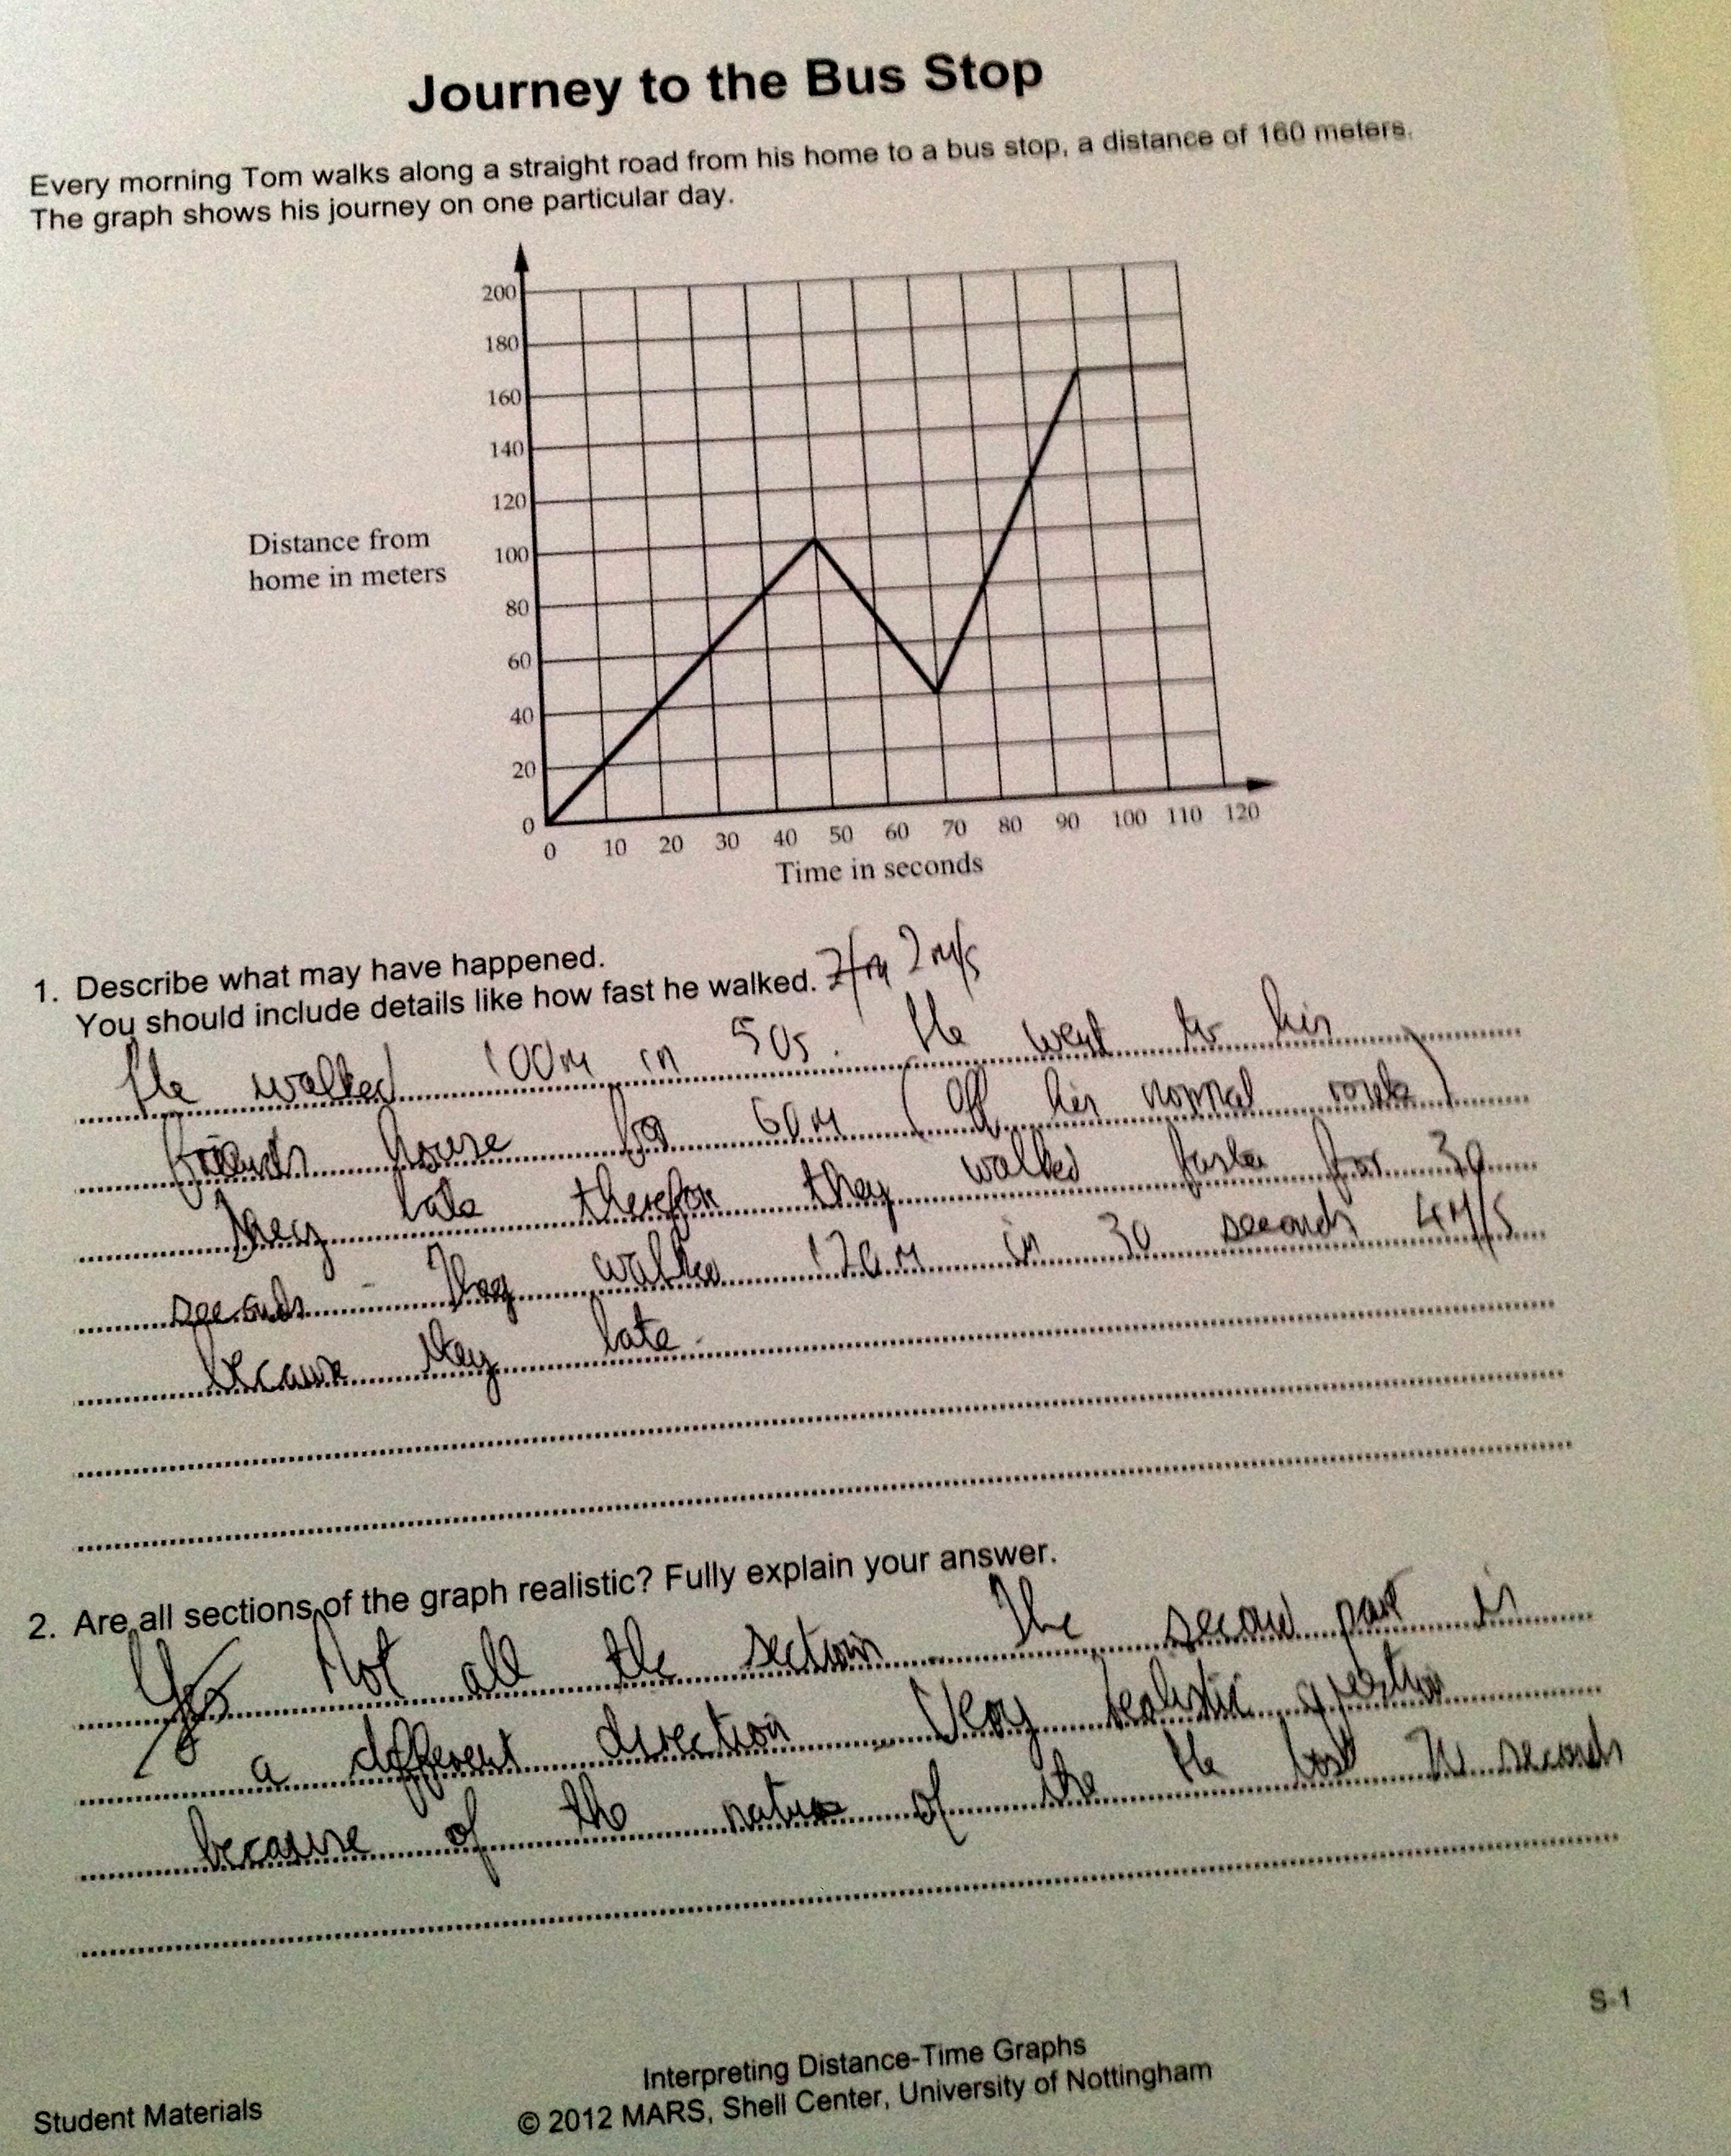 Journey to the Bus Stop
Every morning Tom walks along a straight road from his home to a bus stop, a distance of 160 meters.
The graph shows his journey on one particular day.
200
180
160
140
120
100
80
60
40
20
0
Distance from
home in meters
0 10 20 30 40 50 60 70 80 90 100 110 120
Time in seconds
1. Describe what may have happened.
You should include details like how fast he walked. 2 m/s
He walked 100m in 50s. He went to his
friends house for 60m (Off his normal route)
They late therefore they walked faster for 30
seconds. They walked 120m in 30 seconds 4M/S
because they late.
2. Are all sections of the graph realistic? Fully explain your answer.
Yes Not all the section. The second part is
a different direction. Very realistic
because of the nature of the He last seconds
S-1
Student Materials
Interpreting Distance-Time Graphs
© 2012 MARS, Shell Center, University of Nottingham